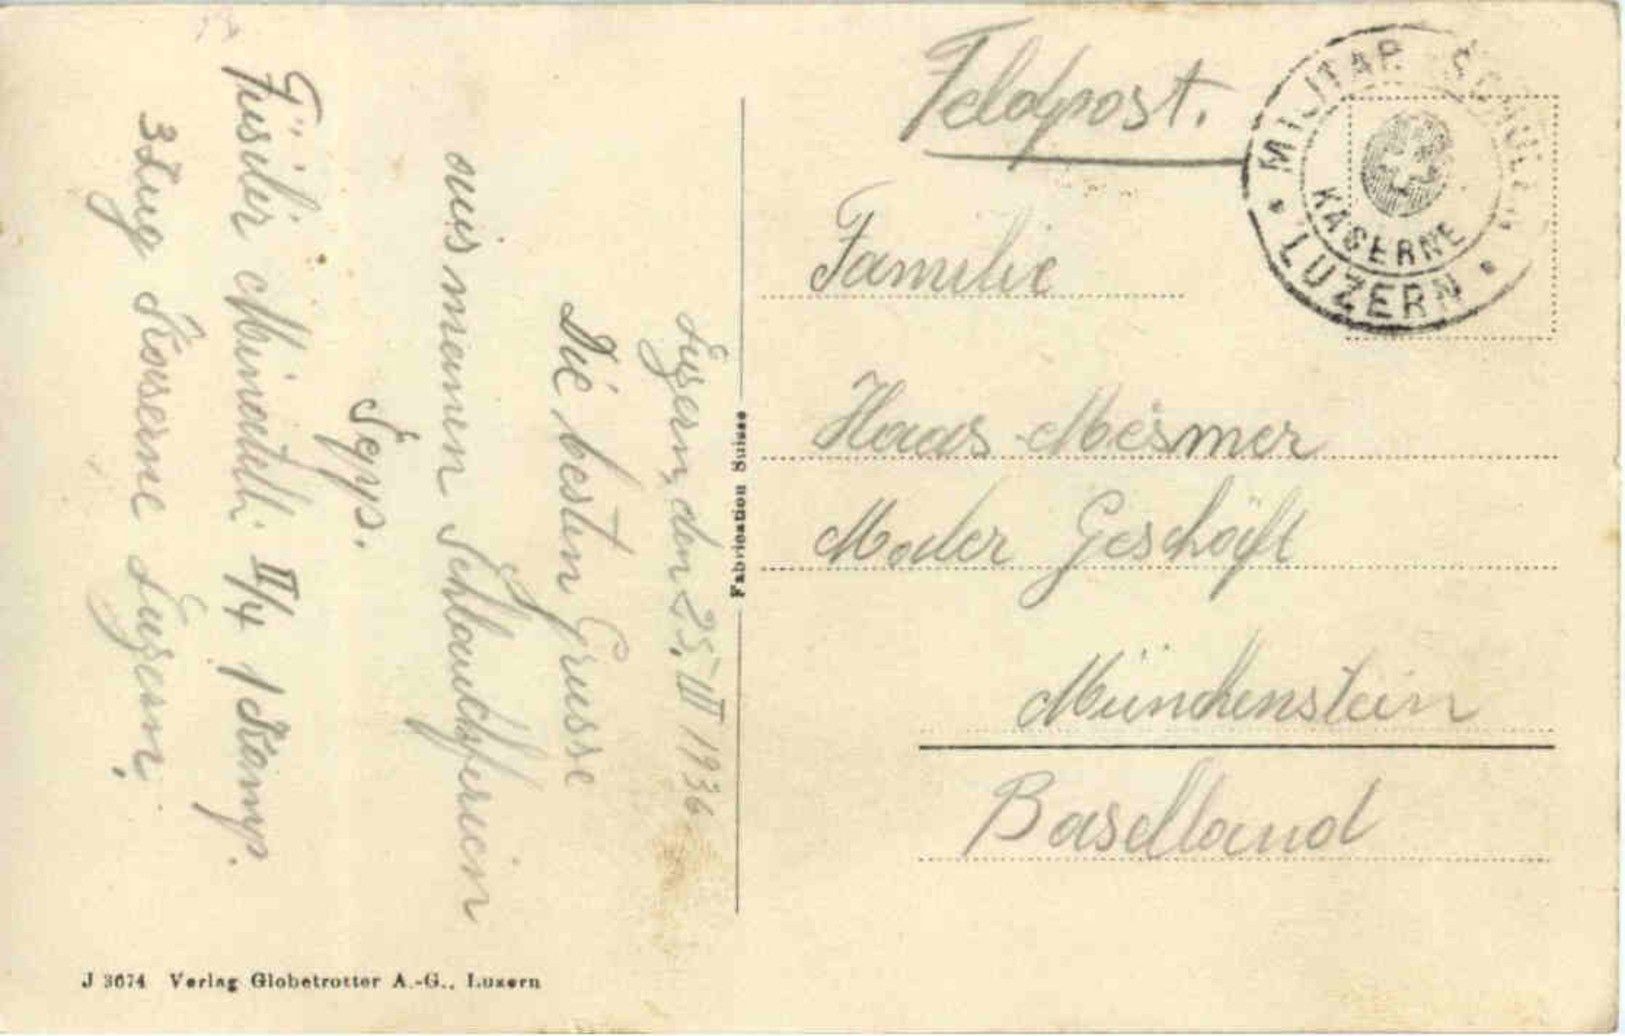 Luzern, den 25. III 1936
Die besten Grüsse
aus meinen Schlauchferien
Sepp.
Füsilier II/4 1 Komp.
3 Zug Kaserne Luzern,
Feldpost.
MILITÄR SCHULEN
KASERNE
LUZERN
Familie
Haas Mesmer
Maler Geschäft
Münchenstein
Baselland
Fabrication Suisse
J 3674 Verlag Globetrotter A.-G., Luzern